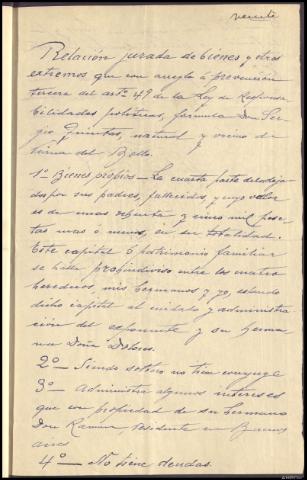 veinte
Relación jurada de bienes y otros
extremos que con arreglo á prevención
tercera del artº 49 de la Ley de Responsa
bilidades políticas, formula Don Ser
gio natural y vecino de
del Bollo.
1º Bienes propios — La cuarta parte del deja
do por sus padres, fallecidos, y cuyo valor
es de unas y cinco mil pese
tas mas ó menos, en su totalidad.
Este capital ó patrimonio familiar
se halla proindiviso entre los cuatro
herederos, mis hermanos y yo, estando
dicho capital al cuidado y administra
ción del exponente y su herma
na Doña Dolores.
2º — Siendo soltero no tiene conyuge
3º — Administra algunos intereses
que son propiedad de su hermano
Don Ramón, residente en Buenos
aires
4º — No tiene deudas.